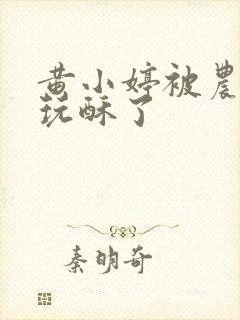 黄小婷被農
玩酥了
秦明奇